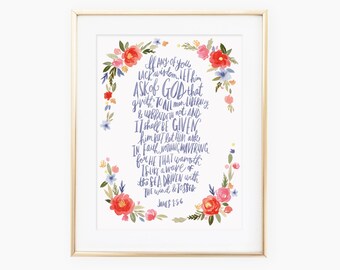 If any of you
lack wisdom, let him
ASK of GOD that
giveth to all men liberally
& upbraideth not AND
IT shall be GIVEN
him but let him ask
in faith, nothing wavering
for HE THAT wavereth
is like a wave of
the SEA DRIVEN with
the wind & tossed
James 1:5-6